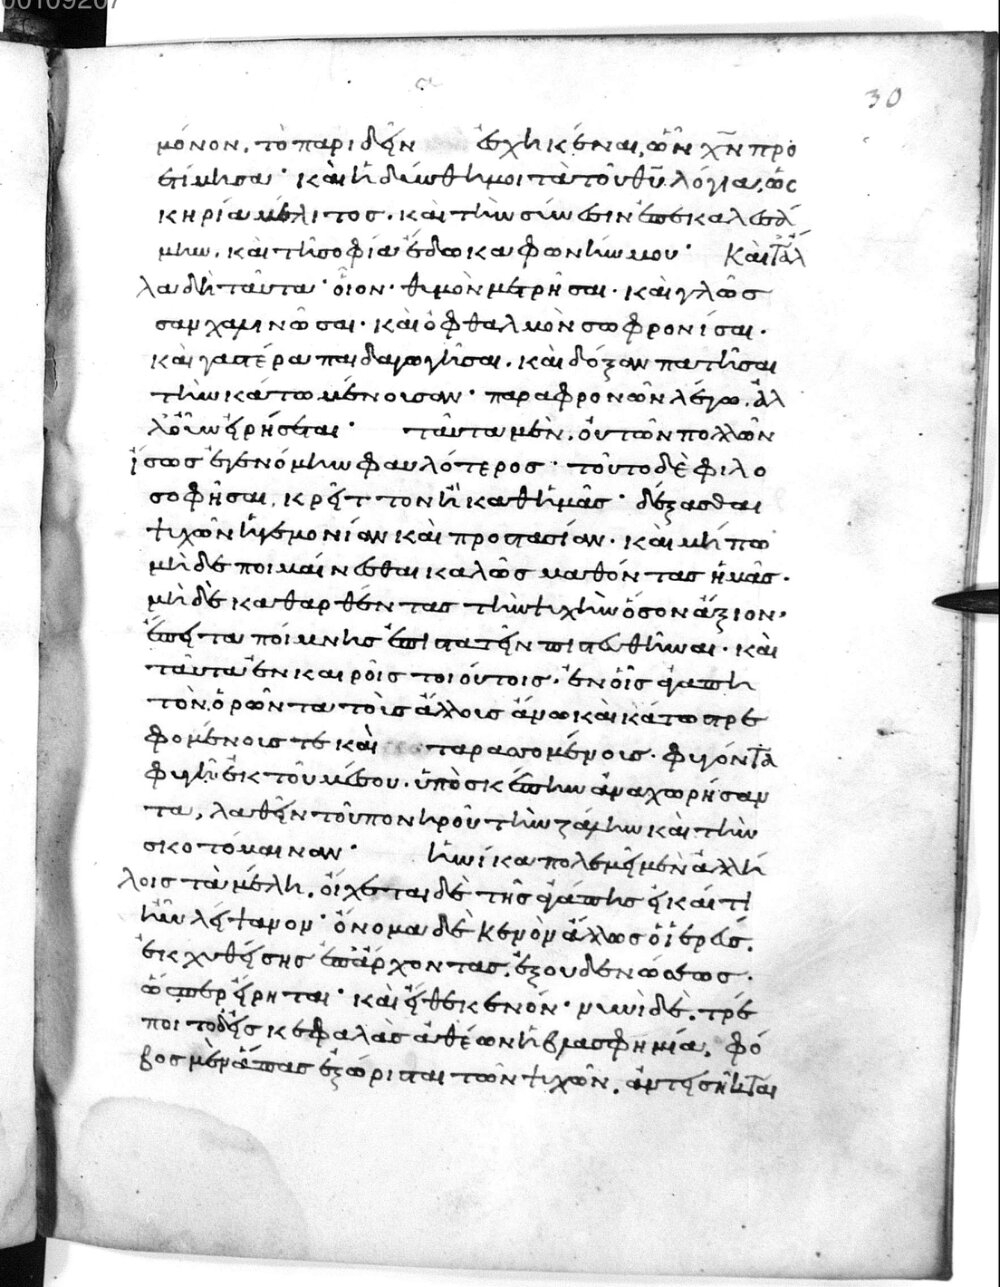 00109207
30
μόνον. τὸ παριδεῖν ἐσχηκέναι, ὧν χν προ
ετίμησα· καὶ ἡδύνθη μοι τὰ τοῦ θυ λόγια, ὡς
κηρία μέλιτος. καὶ τὴν σύνεσιν ἐπεκαλεσά
μην. καὶ τῆ σοφία ἔδωκα φωνήν μου· Καὶ τἆλ
λα δὴ ταῦτα· οἷον· θυμὸν μετρῆσαι. καὶ γλῶσ
σαν χαλινῶσαι. καὶ ὀφθαλμὸν σωφρονίσαι.
καὶ γαστέρα παιδαγωγῆσαι. καὶ δόξαν πατῆσαι
τὴν κάτω μένουσαν· παραφρονῶν λέγω. ἀλ
λ' οὖν εἰρήσεται· ταῦτα μὲν, οὕτω τῶν πολλῶν
ἴσως ἐγενόμην φαυλότερος· τοῦτο δὲ φιλο
σοφῆσαι, κρεῖττον ἢ καθ' ἡμᾶς· δέξασθαι
ψυχῶν ἡγεμονίαν καὶ προστασίαν. καὶ μήπω
μηδὲ ποιμαίνεσθαι καλῶς μαθόντας ἡμᾶς.
μηδὲ καθαρθέντας τὴν ψυχὴν ὅσον ἄξιον,
ἔπειτα ποίμνης ἐπιστατεῖν πιστευθῆναι. καὶ
ταῦτα ἐν καιροῖς τοιούτοις. ἐν οἷς ἀγαπητὸν
τὸν ὁρῶντα τοὺς ἄλλους ἄνω καὶ κάτω στρε
φομένους τε καὶ ταρασσομένους. φυγόντα
φυγῆ ἐκ τοῦ μέσου. ὑπὸ σκέπην ἀναχωρήσαν
τα, λαθεῖν τοῦ πονηροῦ τὴν ζάλην καὶ τὴν
σκοτόμαιναν· ἡνίκα πολεμεῖ μὲν ἀλλή
λοις τὰ μέλη. οἴχεται δὲ τῆς ἀγάπης εἰ καί τι
ἦν λείψανον· ὄνομα δὲ κενὸν ἄλλως ὁ ἱερεύς.
ἐκχυθείσης ἐπ' ἄρχοντας, ἐξουδενώσεως.
ὥσπερ εἴρηται· καὶ εἴθε κενόν· νυνὶ δὲ. τρέ
ποιτο δὲ εἰς κεφαλὰς ἀθέων ἡ βλασφημία. φό
βος μὲν ἅπας ἐξώρισται τῶν ψυχῶν. ἀντεισῆκται